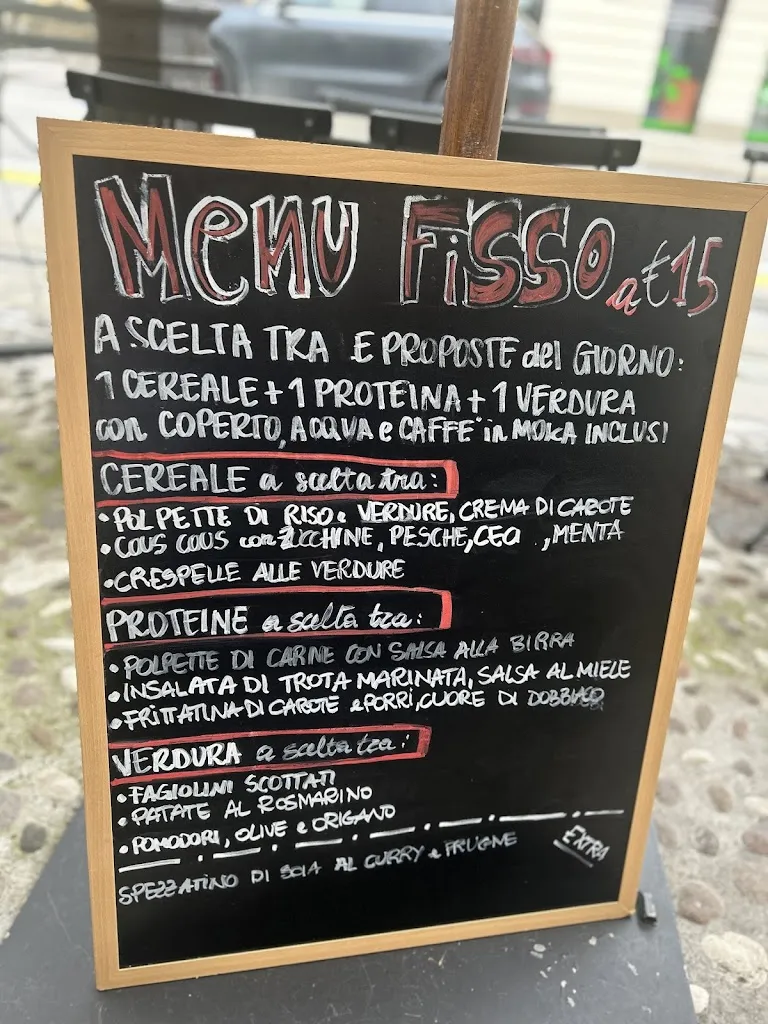 Menu Fisso a €15
A SCELTA TRA E PROPOSTE del GIORNO:
1 CEREALE + 1 PROTEINA + 1 VERDURA
con COPERTO, ACQUA e CAFFE' in MOKA INCLUSI
CEREALE a scelta tra:
• POLPETTE DI RISO e VERDURE, CREMA DI CAROTE
• COUS COUS con ZUCCHINE, PESCHE, CECI, MENTA
• CRESPELLE ALLE VERDURE
PROTEINE a scelta tra:
• POLPETTE DI CARNE CON SALSA ALLA BIRRA
• INSALATA DI TROTA MARINATA, SALSA AL MIELE
• FRITTATINA DI CAROTE e PORRI, CUORE DI DOBBIACO
VERDURA a scelta tra:
• FAGIOLINI SCOTTATI
• PATATE AL ROSMARINO
• POMODORI, OLIVE e ORIGANO
EXTRA
SPEZZATINO DI SOIA AL CURRY e PRUGNE